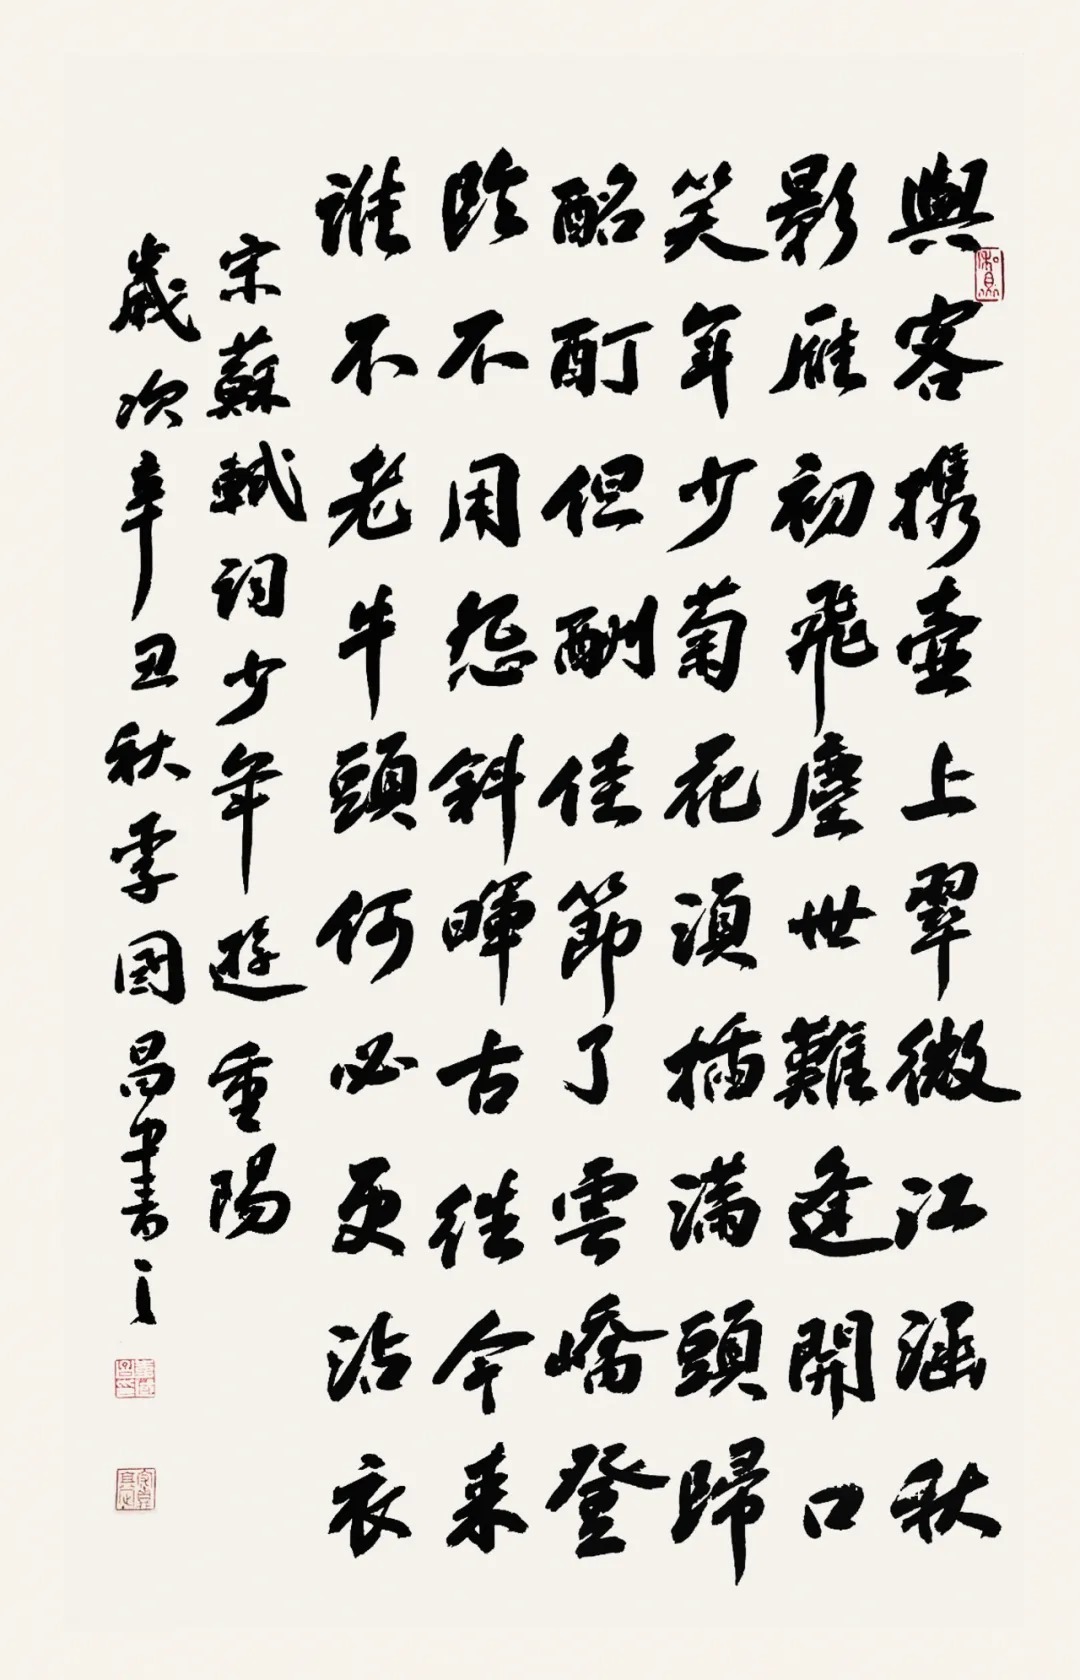 與客携壺上翠微江涵秋
影雁初飛塵世難逢開口
笑年少菊花須插滿頭歸
酩酊但酬佳節了雲嶠登
臨不用怨斜暉古往今來
誰不老牛頭何必更沾衣
宋蘇軾詞少年遊重陽
歲次辛丑秋李國昌書之